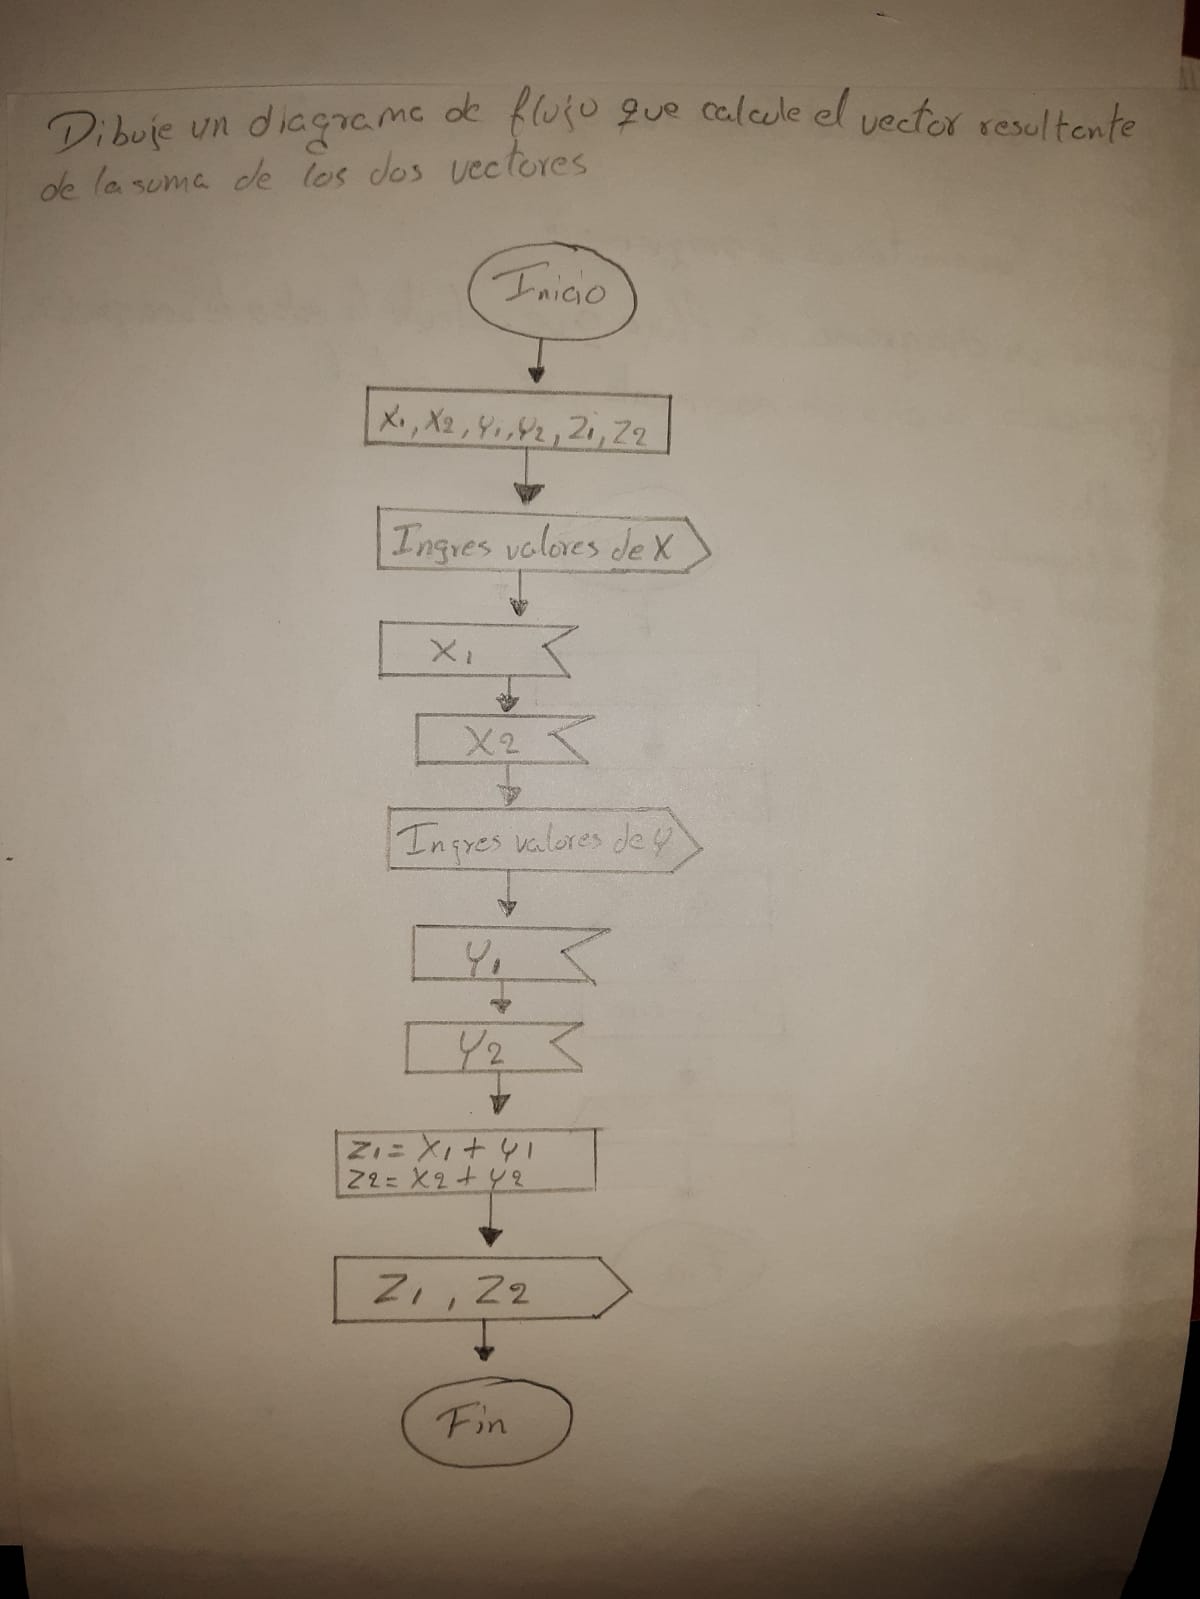 Dibuje un diagrama de flujo que calcule el vector resultante
de la suma de los dos vectores
Inicio
X1, X2, Y1, Y2, Z1, Z2
Ingres valores de X
X1
X2
Ingres valores de Y
Y1
Y2
Z1 = X1 + Y1
Z2 = X2 + Y2
Z1, Z2
Fin